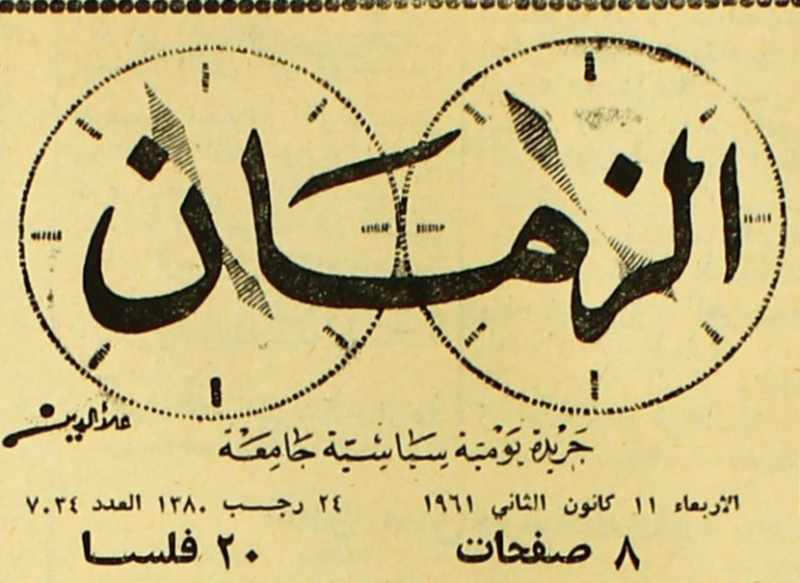 الزمان
علاءالدين
جريدة يومية سياسية جامعة
الاربعاء ١١ كانون الثاني ١٩٦١ ٢٤ رجب ١٣٨٠ العدد ٧٠٣٤
٨ صفحات ٢٠ فلسا